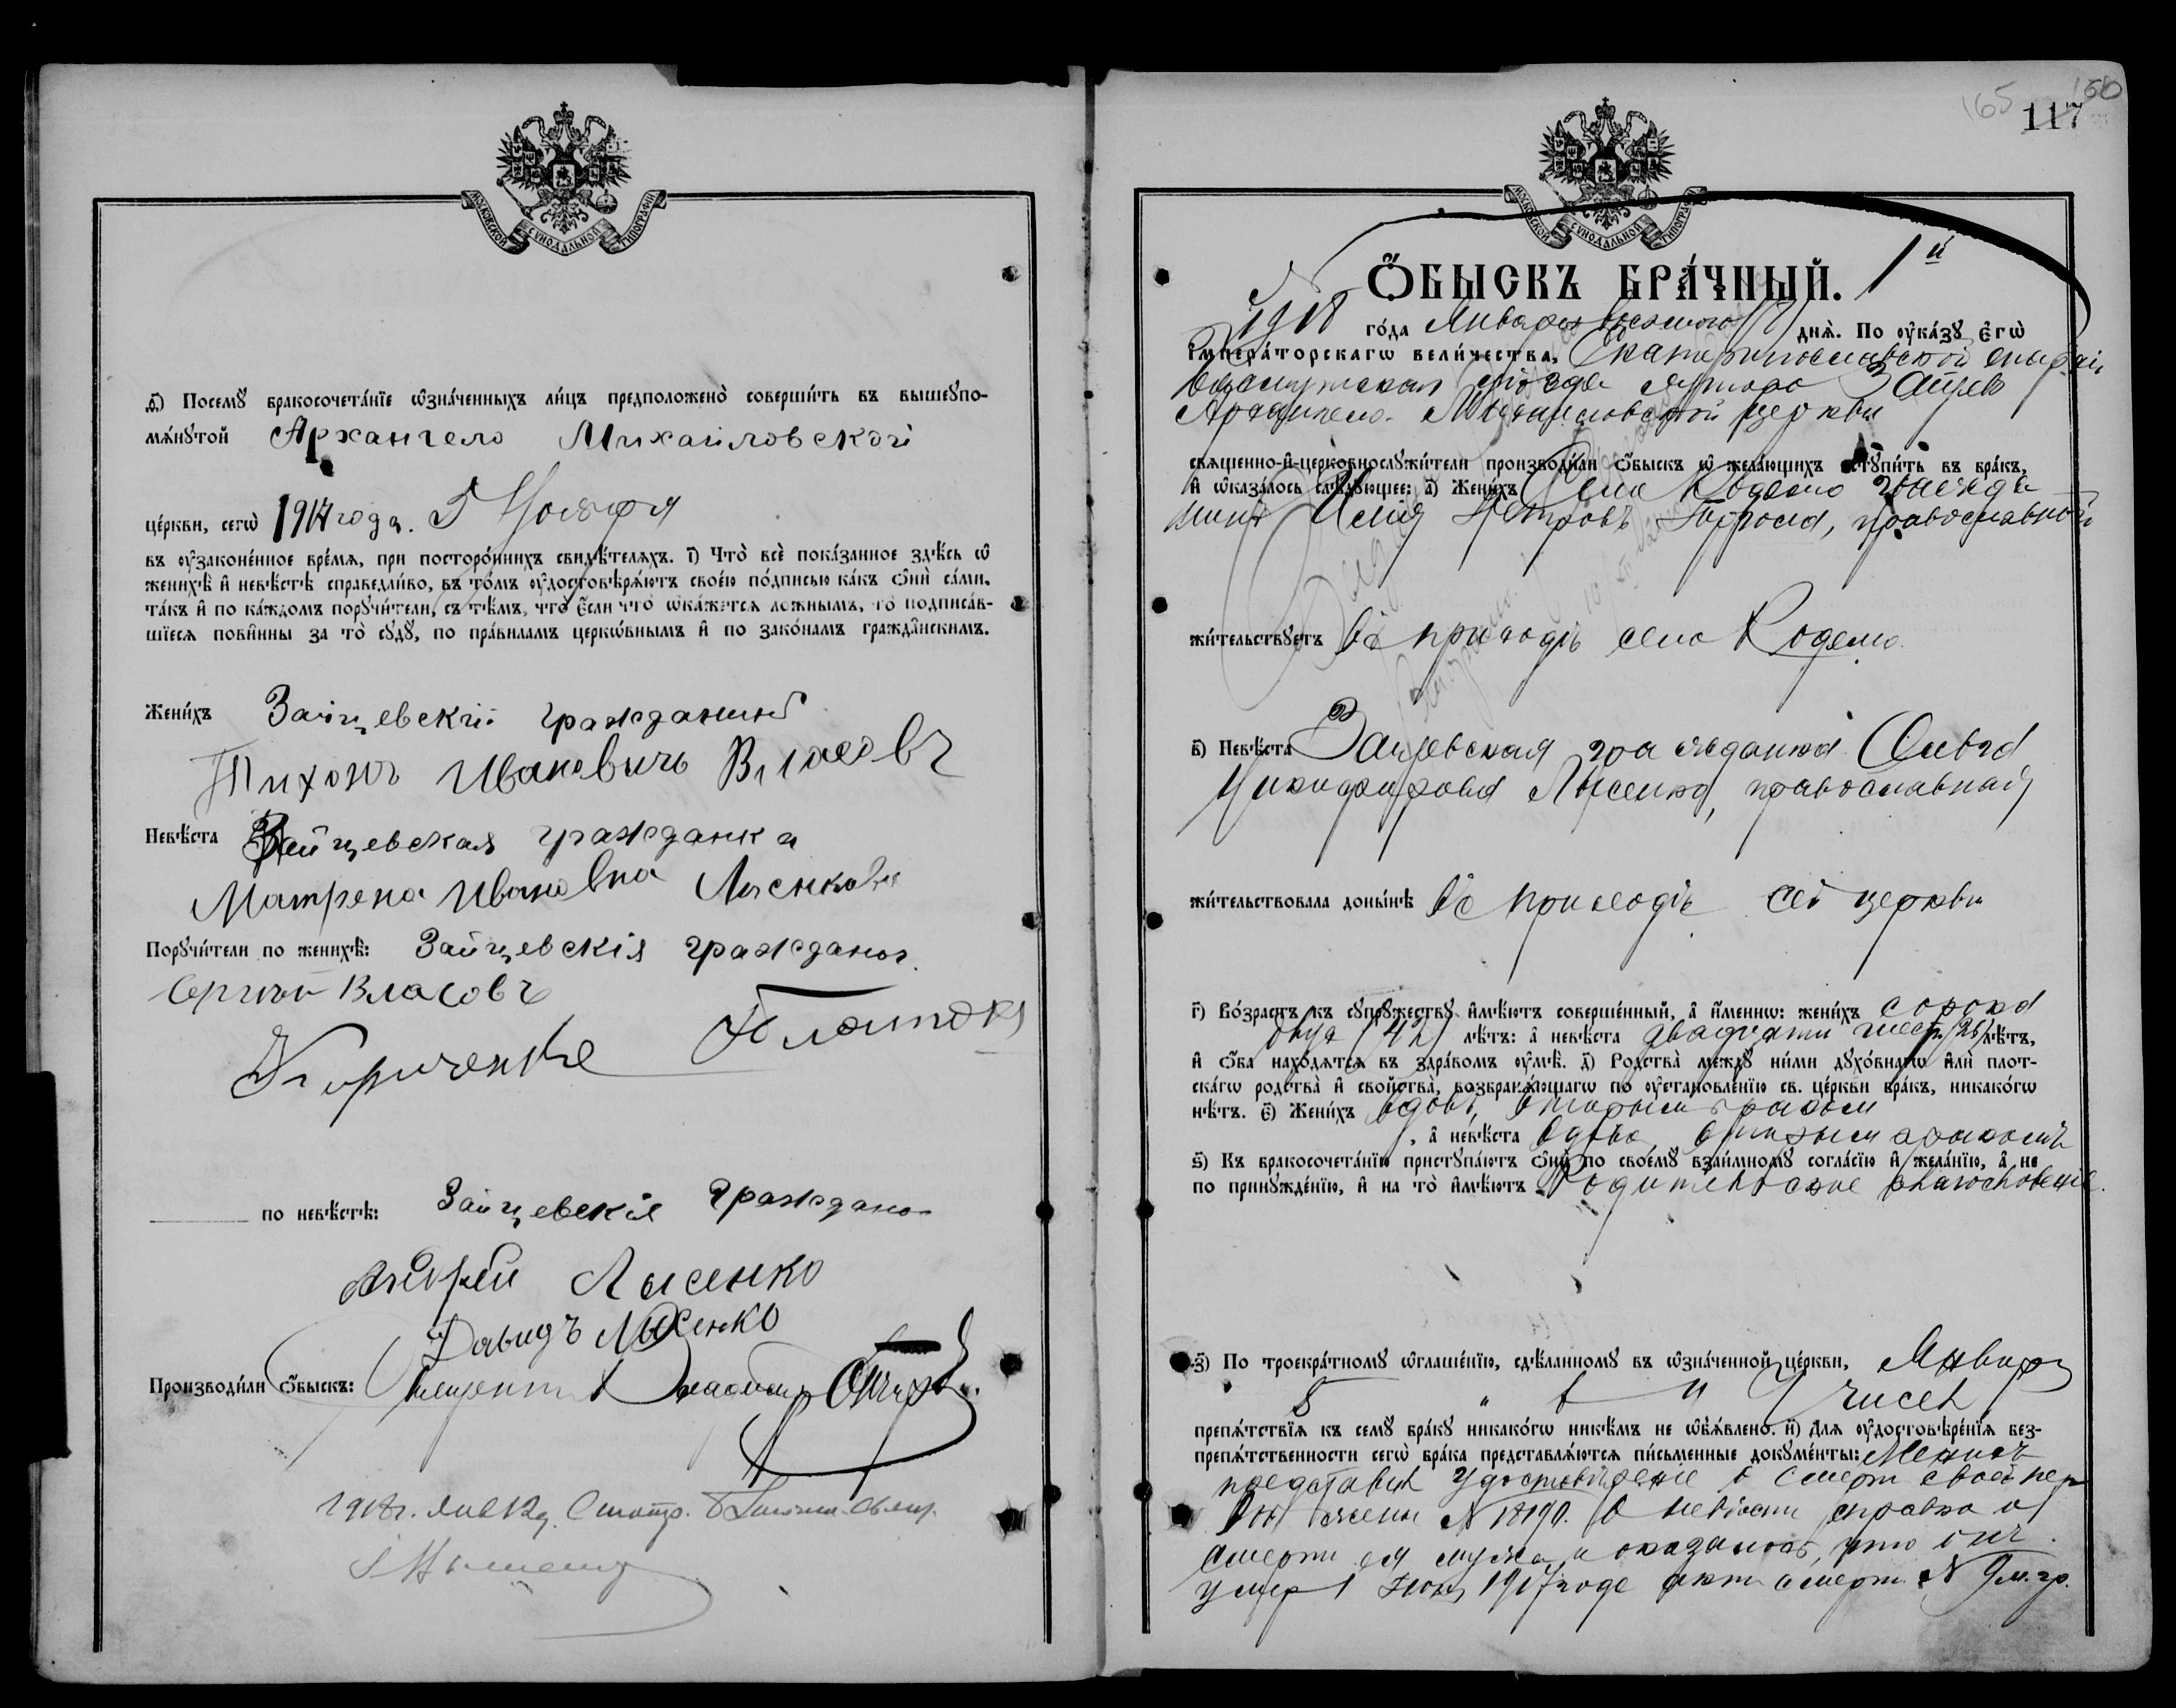 МОСКОВСКОЙ СѴНОДАЛЬНОЙ ТИПОГРАФІИ
д҃) Посемꙋ бракосочета́нїе ѡ҆зна́ченныхъ ли́цъ предположено̀ соверши́ть въ вышеꙋпо-
мѧ́нꙋтой Архангело Михайловской
це́ркви, сегѡ̀ 1917 года. Ноября
въ ᲂу҆зако́ненное вре́мѧ, при посторо́ннихъ свидѣ́телѧхъ. і҃) Что̀ всѐ пока́занное здѣ́сь ѡ҆
женихѣ̀ и҆ невѣ́стѣ справедли́во, въ то́мъ ᲂу҆достовѣрѧ́ютъ свое́ю по́дписью ка́къ ѻ҆нѝ са́ми,
та́къ и҆ по ка́ждомъ порꙋчи́тели, съ тѣ́мъ, что̀ є҆́сли что̀ ѡ҆ка́жетсѧ ло́жнымъ, то̀ подписа́в-
шїесѧ пови́нны за то̀ сꙋдꙋ̀, по пра́виламъ церкѡ́внымъ и҆ по зако́намъ гражда̑нскимъ.
Жени́хъ Зайцевскій гражданинъ
Тихонъ Ивановичъ Власовъ
Невѣ́ста Зайцевская гражданка
Матрена Ивановна Лысенкова
Порꙋчи́тели по женихѣ̀: Зайцевскія граждане
Сергѣй Власовъ
Кириченко Платонъ
по невѣ́стѣ: Зайцевскія граждане
Андрей Лысенко
Давидъ Лысенко
Производи́ли ѻ҆́быскъ: Священникъ
1918 г. Янв 12 д. Смотр. Благоч. Свящ.
165 150
117
МОСКОВСКОЙ СѴНОДАЛЬНОЙ ТИПОГРАФІИ
Ѻ҆́БЫСКЪ БРА́ЧНЫЙ. 1й
1918 го́да Января дня̀. По ᲂу҆ка́зꙋ є҆гѡ̀
і҆мпера́торскагѡ вели́чества, Екатеринославской епархіи
Бахмутскаго уѣзда хутора Зайцева
Архангело-Михайловской церкви
свѧще́нно-и҆-церковнослꙋжи́тели производи́ли ѻ҆́быскъ ѡ҆ жела́ющихъ встꙋпи́ть въ бра́къ,
и҆ ѡ҆каза́лось слѣ́дꙋющее: а҃) Жени́хъ Села Кодемо гражда
нинъ Илія Петровъ православный
жи́тельствꙋетъ въ приходѣ села Кодемо.
в҃) Невѣ́ста Зайцевская гражданка
Никифорова Лысенко, православная
жи́тельствовала доны́нѣ въ приходѣ сей церкви
г҃) Во́зрастъ къ сꙋпрꙋ́жествꙋ и҆мѣ́ютъ соверше́нный, а҆ и҆́меннѡ: жени́хъ сорока
двух (42) лѣ́тъ: а҆ невѣ́ста двадцати шести (26) лѣ́тъ,
и҆ ѻ҆́ба нахо́дѧтсѧ въ здра́вомъ ᲂу҆мѣ̀. д҃) Родства̀ междꙋ̀ ни́ми дꙋхо́внагѡ и҆лѝ плот-
ска́гѡ родства̀ и҆ сво́йства̀, возбранѧ́ющагѡ по ᲂу҆становле́нїю св. це́ркви бра́къ, никако́гѡ
нѣ́тъ. є҃) Жени́хъ вдовъ, вторымъ бракомъ
, а҆ невѣ́ста вдова, вторымъ бракомъ
ѕ҃) Къ бракосочета́нїю пристꙋпа́ютъ ѻ҆нѝ по своемꙋ̀ взаи́мномꙋ согла́сїю и҆ жела́нїю, а҆ не
по принꙋжде́нїю, и҆ на то̀ и҆мѣ́ютъ Родительское благословеніе.
з҃) По троекра́тномꙋ ѡ҆глаше́нїю, сдѣ́ланномꙋ въ ѡ҆зна́ченной це́ркви, Января
чиселъ
препѧ́тствїѧ къ семꙋ̀ бра́кꙋ никако́гѡ никѣ́мъ не ѡ҆б̾ѧ́влено. и҃) Длѧ ᲂу҆достовѣре́нїѧ без-
препѧ́тственности сегѡ̀ бра́ка представлѧ́ютсѧ пи́сьменные докꙋме́нты: Женихъ
представилъ удостовѣреніе о смерти своей пер
вой жены О невѣсти справка о
смерти ея мужа, и оказалось, что онъ
умер 1 1917 года актъ смерти № 9 м. гр.